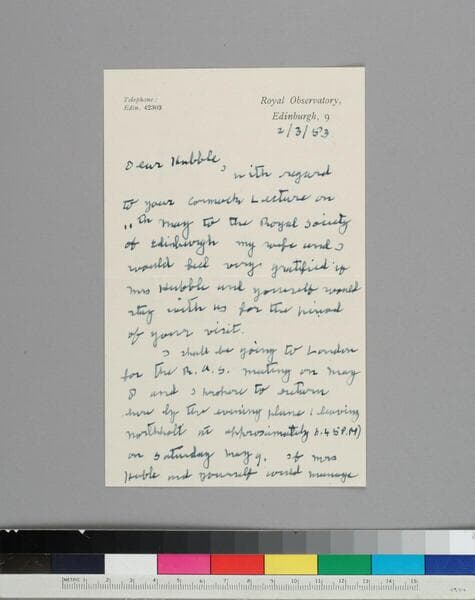 Telephone:
Edin. 42303
Royal Observatory,
Edinburgh, 9
2/3/53
Dear Hubble,
with regard
to your Cormack Lecture on
11th May to the Royal Society
of Edinburgh my wife and I
would feel very gratified if
Mrs Hubble and yourself would
stay with us for the period
of your visit.
I shall be going to London
for the R.A.S. meeting on May
8 and I propose to return
here by the evening plane (leaving
Northholt at approximately 6.45 P.M)
on Saturday May 9. If Mrs
Huble and yourself could manage
METRIC 1 2 3 4 5 6 7 8 9 10 11 12 13 14 15